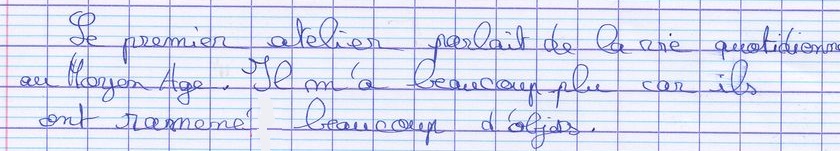 Le premier atelier parlait de la vie quotidienne
au Moyen Age. Il m'a beaucoup plu car ils
ont rammené beaucoup d'objets.